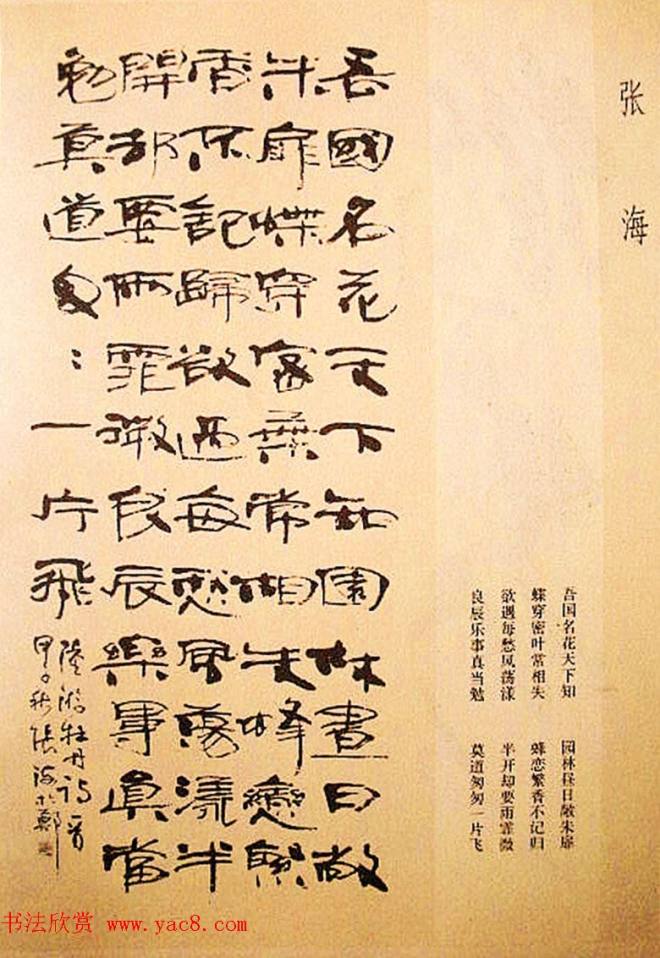 张海
吾国名花天下知 园林昼日敞朱扉
蝶穿密叶常相失 蜂恋繁香不记归
欲遇每愁风荡漾 半开却要雨霏微
良辰乐事真当勉 莫道匆匆一片飞
吾國名花天下知園林晝日敞
朱扉蝶穿密葉常相失蜂戀繁
香不記歸欲過每愁風蕩漾半
開却要雨霏微良辰樂事真當
勉莫道匆：一片飛
陸游牡丹詩一首
甲子秋張海於鄭
书法欣赏 www.yac8.com